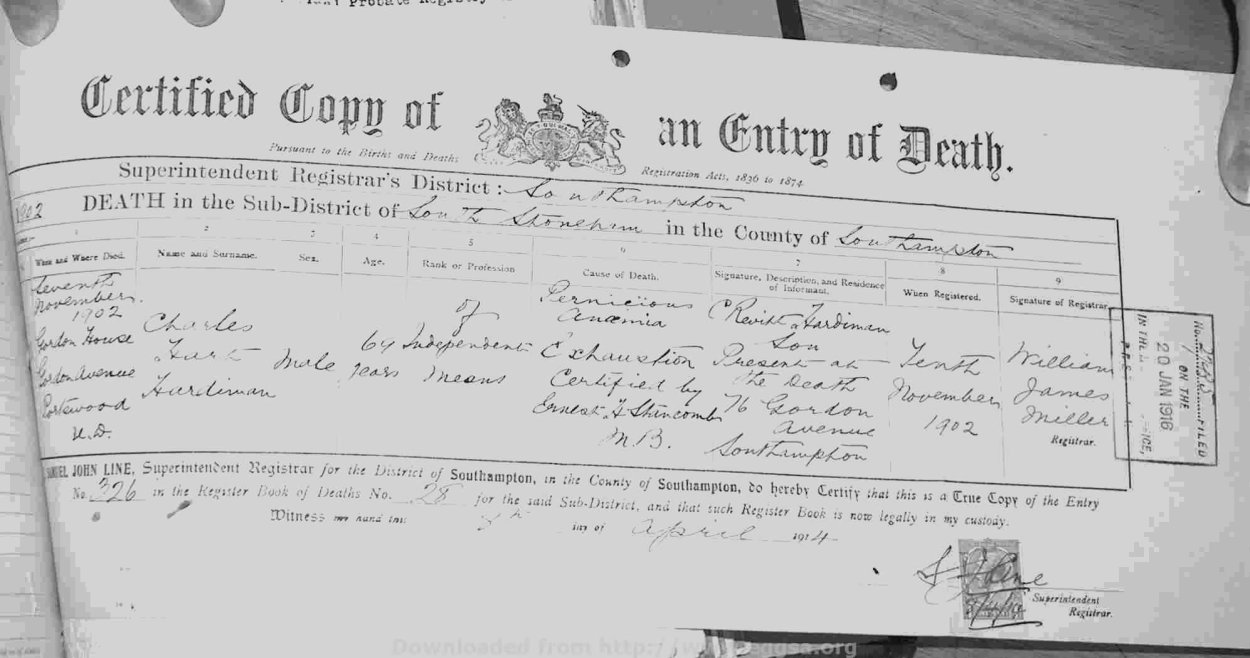 Probate Registry
Certified Copy of an Entry of Death.
Pursuant to the Births and Deaths Registration Acts, 1836 to 1874
Superintendent Registrar's District: Southampton
1902 DEATH in the Sub-District of South Stoneham in the County of Southampton
1 2 3 4 5 6 7 8 9
When and Where Died. Name and Surname. Sex. Age. Rank or Profession Cause of Death. Signature, Description, and Residence of Informant. When Registered. Signature of Registrar
Seventh
November
1902
Gordon House
Gordon Avenue
Portswood
U.D.
Charles
Hart
Hardiman
Male
64
years
of
Independent
Means
Pernicious
Anæmia
Exhaustion
Certified by
Ernest H Stancomb
M.B.
C Revitt Hardiman
Son
Present at
the Death
76 Gordon
Avenue
Southampton
Tenth
November
1902
William
James
Miller
Registrar.
FILED
ON THE
20 JAN 1916
IN THE
SAMUEL JOHN LINE, Superintendent Registrar for the District of Southampton, in the County of Southampton, do hereby Certify that this is a True Copy of the Entry
No. 326 in the Register Book of Deaths No. 28 for the said Sub-District, and that such Register Book is now legally in my custody.
Witness my hand this day of April 1914
S J Line
Superintendent
Registrar.
Downloaded from http://